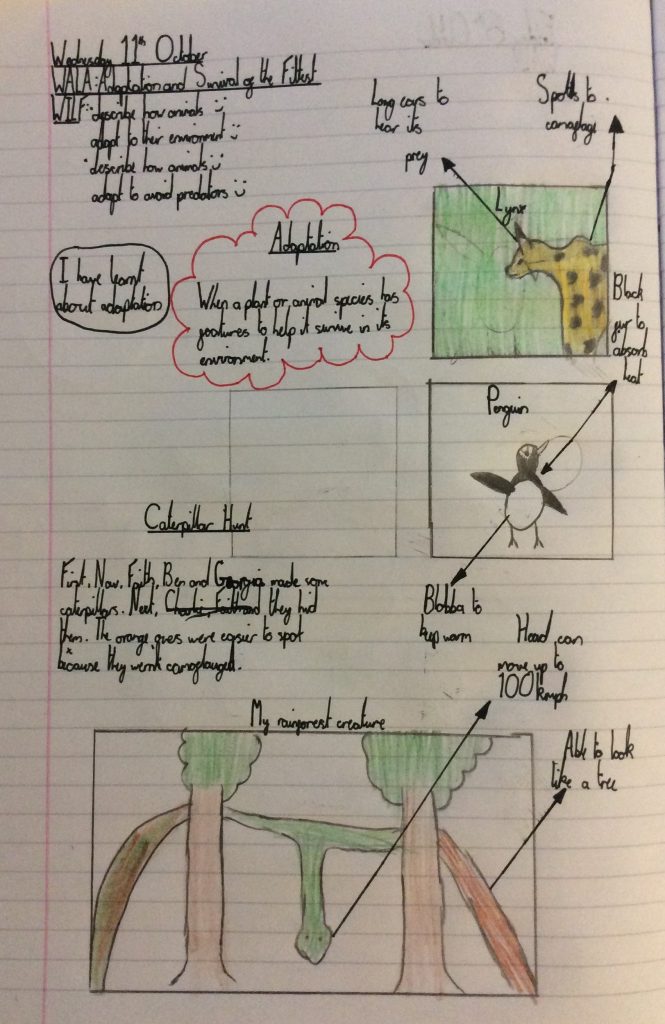 Wednesday 11th October
WALA: Adaptation and Survival of the Fittest
WILF: describe how animals
adapt to their environment
describe how animals
adapt to avoid predators
Long ears to
hear its
prey
Spotts to
camoflage
Lynx
Adaptation
When a plant or animal species has
features to help it survive in its
environment.
I have learnt
about adaptation
Black
fur to
absorb
heat
Penguin
Blobba to
keep warm
Caterpillar Hunt
First, Faith, Ben and Georgia made some
caterpillars. Next, they hid
them. The orange ones were easier to spot
because they wernt camoflauged.
Head can
move up to
100 kmph
My rainforest creature
Able to look
like a tree